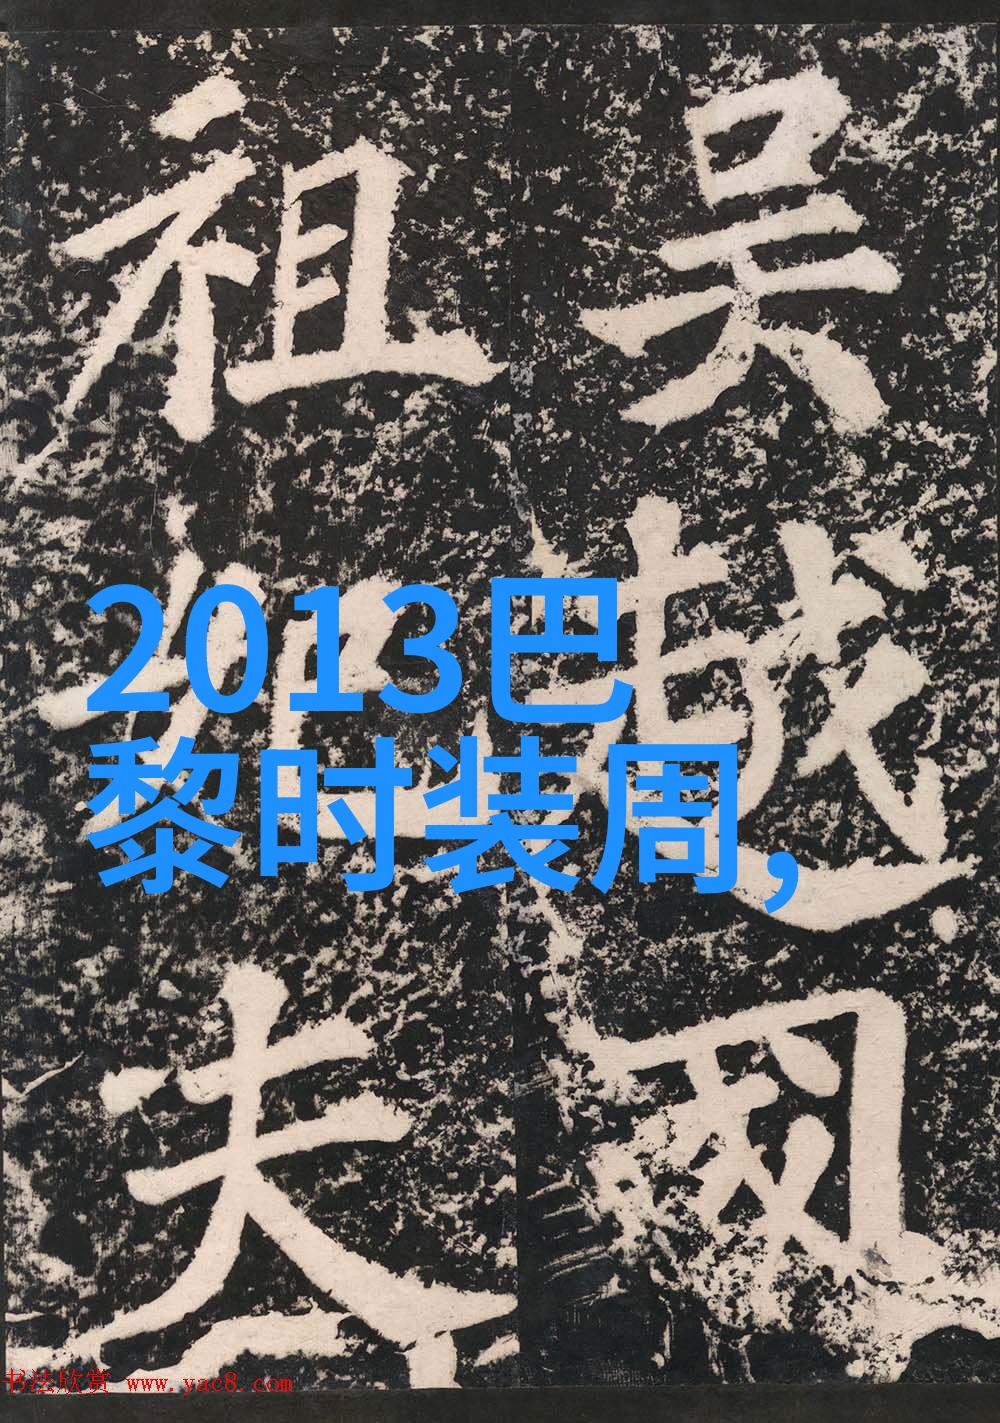 吴越國
祖妃夫
2013巴
黎时装周,
书法欣赏 www.yac8.com